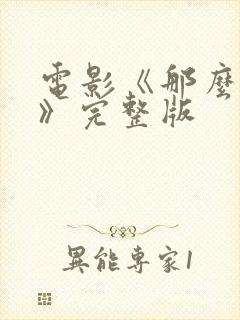 電影《那麼
》完整版
異能專家1